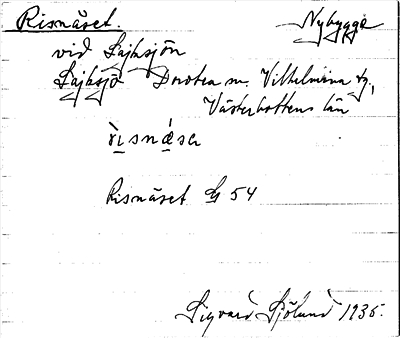 Risnäset. Nybygge
vid Lajksjön
Lajksjö Dorotea m. Vilhelmina tg,
Västerbottens län
rìsnǽsɛ
Risnäset G 54
Sigvard Sjölund 1935.